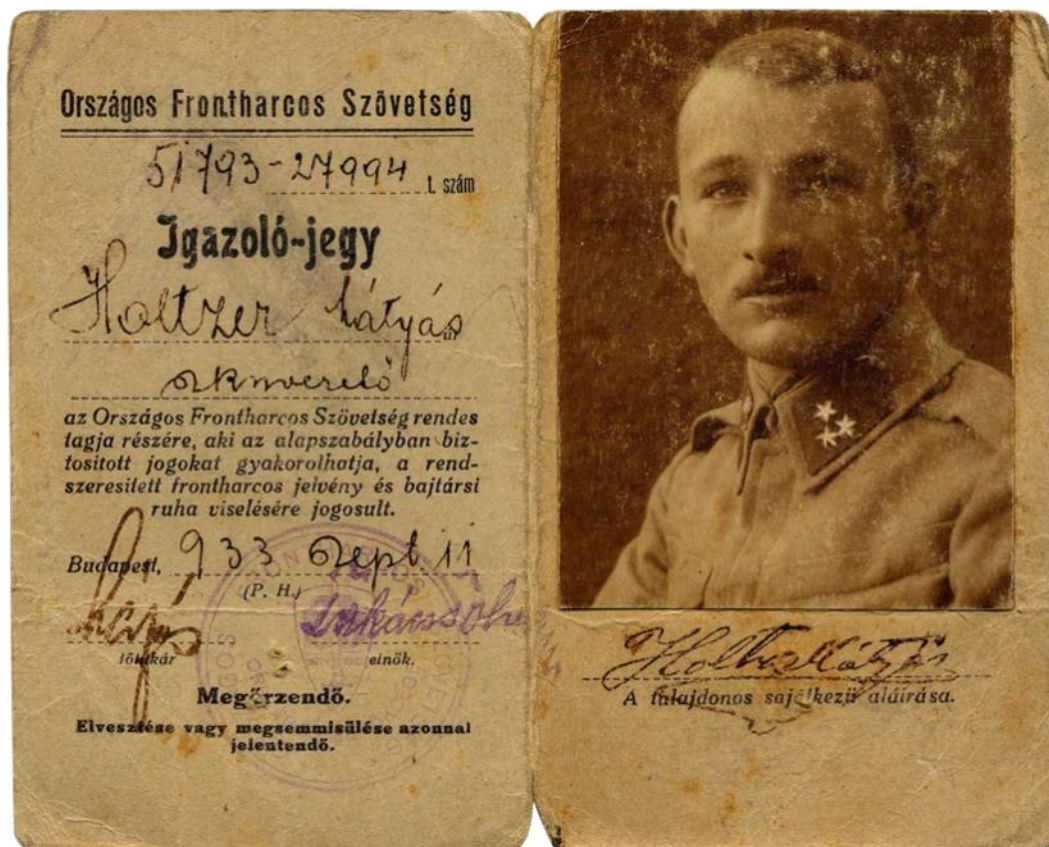 Országos Frontharcos Szövetség
51793-27994 t. szám
Igazoló-jegy
Holtzer Mátyás
úr
az Országos Frontharcos Szövetség rendes
tagja részére, aki az alapszabályban biz-
tosított jogokat gyakorolhatja, a rend-
szeresitett frontharcos jelvény és bajtársi
ruha viselésére jogosult.
Budapest, 933 Sept. 11
(P. H.)
főtitkár elnök.
Megőrzendő.
Elvesztése vagy megsemmisülése azonnal
jelentendő.
Holtzer Mátyás
A tulajdonos sajátkezű aláírása.